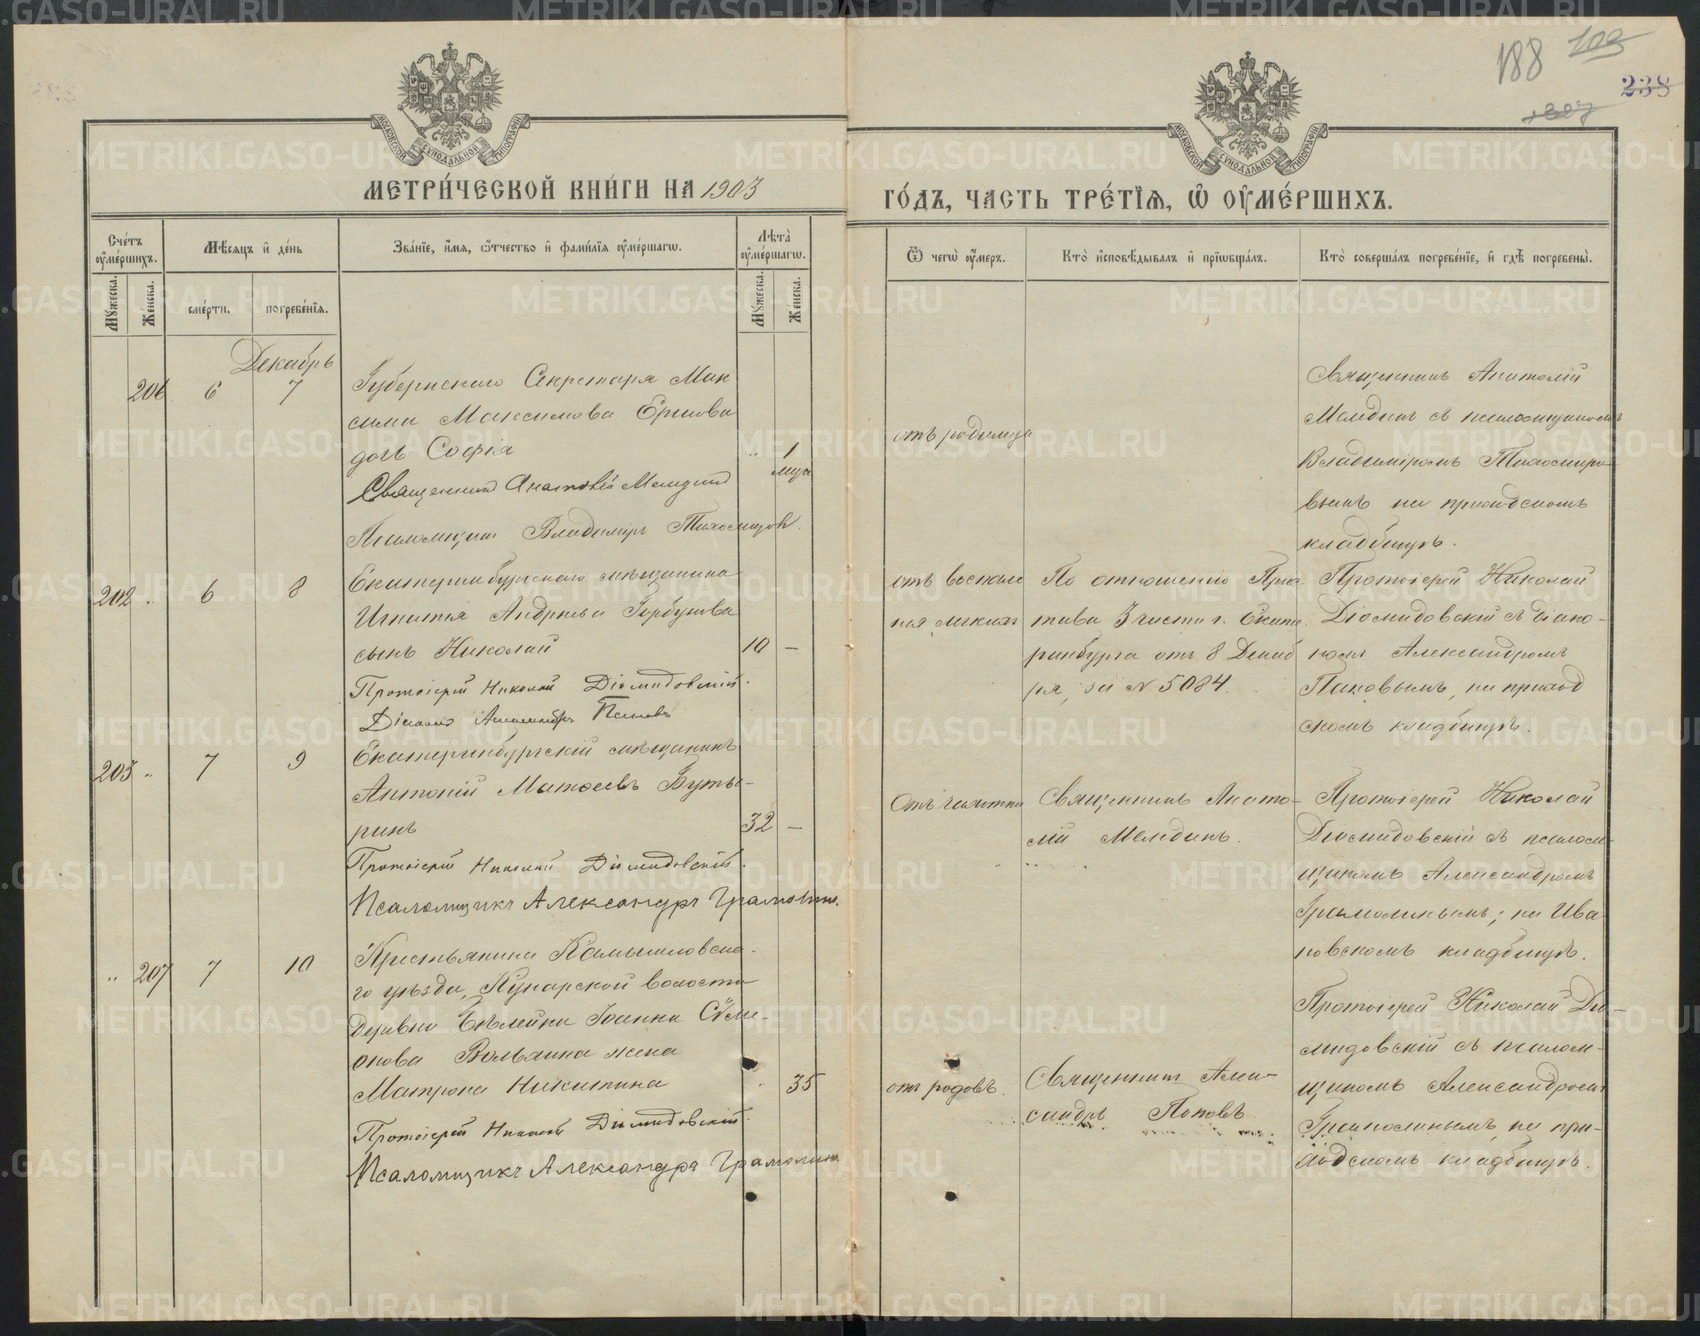 188 103
238
1307
МОСКОВСКОЙ СѴНОДАЛЬНОЙ ТИПОГРАФІИ
МОСКОВСКОЙ СѴНОДАЛЬНОЙ ТИПОГРАФІИ
МЕТРИ́ЧЕСКОЙ КНИ́ГИ НА 1903
ГО́ДЪ, ЧАСТЬ ТРЕ́ТІѦ, Ѡ҆ ОУ҆МЕ́РШИХЪ.
Сче́тъ оу҆ме́ршихъ.
Мѣ́сѧцъ и҆ де́нь
Зва́нїе, и҆́мѧ, ѻ҆́тчество и҆ фами́лїѧ оу҆ме́ршагѡ.
Лѣта̀ оу҆ме́ршагѡ.
Ѿ чегѡ̀ оу҆́меръ.
Кто̀ и҆сповѣ́дывалъ и҆ прїѡбща́лъ.
Кто̀ соверша́лъ погребе́нїе, и҆ гдѣ̀ погребены̀.
Мꙋ́жеска.
Же́нска.
сме́рти.
погребе́нїѧ.
Мꙋ́жеска.
Же́нска.
Декабрь
206 6 7
Губернскаго Секретаря Мак
сима Максимова Ершова
дочь София
" 1
мца
Священник Анатолій Мелединъ
Псаломщик Владимир Тихомиров.
отъ родимца
Священникъ Анатолій
Мелединъ съ псаломщикомъ
Владиміромъ Тихомиро-
вымъ на приходскомъ
кладбищѣ.
202 " 6 8
Екатеринбургскаго мѣщанина
Игнатія Андреева Горбунова
сынъ Николай
10 —
Протоіерей Николай Діомидовскій.
Діаконъ Александръ Пановъ
отъ воспале
нія легкихъ
По отношенію Прис
тава 3 части г. Екате
ринбурга отъ 8 Декаб
ря, за N 5084.
Протоіерей Николай
Діомидовскій съ діако-
номъ Александромъ
Пановымъ, на приход
скомъ кладбищѣ.
203 " 7 9
Екатеринбургскій мѣщанинъ
Антоній Матѳеевъ Буты-
ринъ
32 —
Протоіерей Николай Діомидовскій.
Псаломщикъ Александръ Грамолинъ.
Отъ чахотки
Священникъ Анато-
лій Мелединъ.
Протоіерей Николай
Діомидовскій съ псалом-
щикомъ Александромъ
Грамолинымъ, на Ива-
новскомъ кладбищѣ.
" 207 7 10
Крестьянина Камышловска-
го уѣзда, Кунарской волости
деревни Бѣлейки Іоанна Симе-
онова Вольхина жена
Матрона Никитина
" 35
Протоіерей Николай Діомидовскій.
Псаломщикъ Александръ Грамолинъ
отъ родовъ.
Священникъ Алек-
сандръ Поповъ
Протоіерей Николай Діо-
мидовскій съ псалом-
щикомъ Александромъ
Грамолинымъ, на при-
ходскомъ кладбищѣ.
METRIKI.GASO-URAL.RU